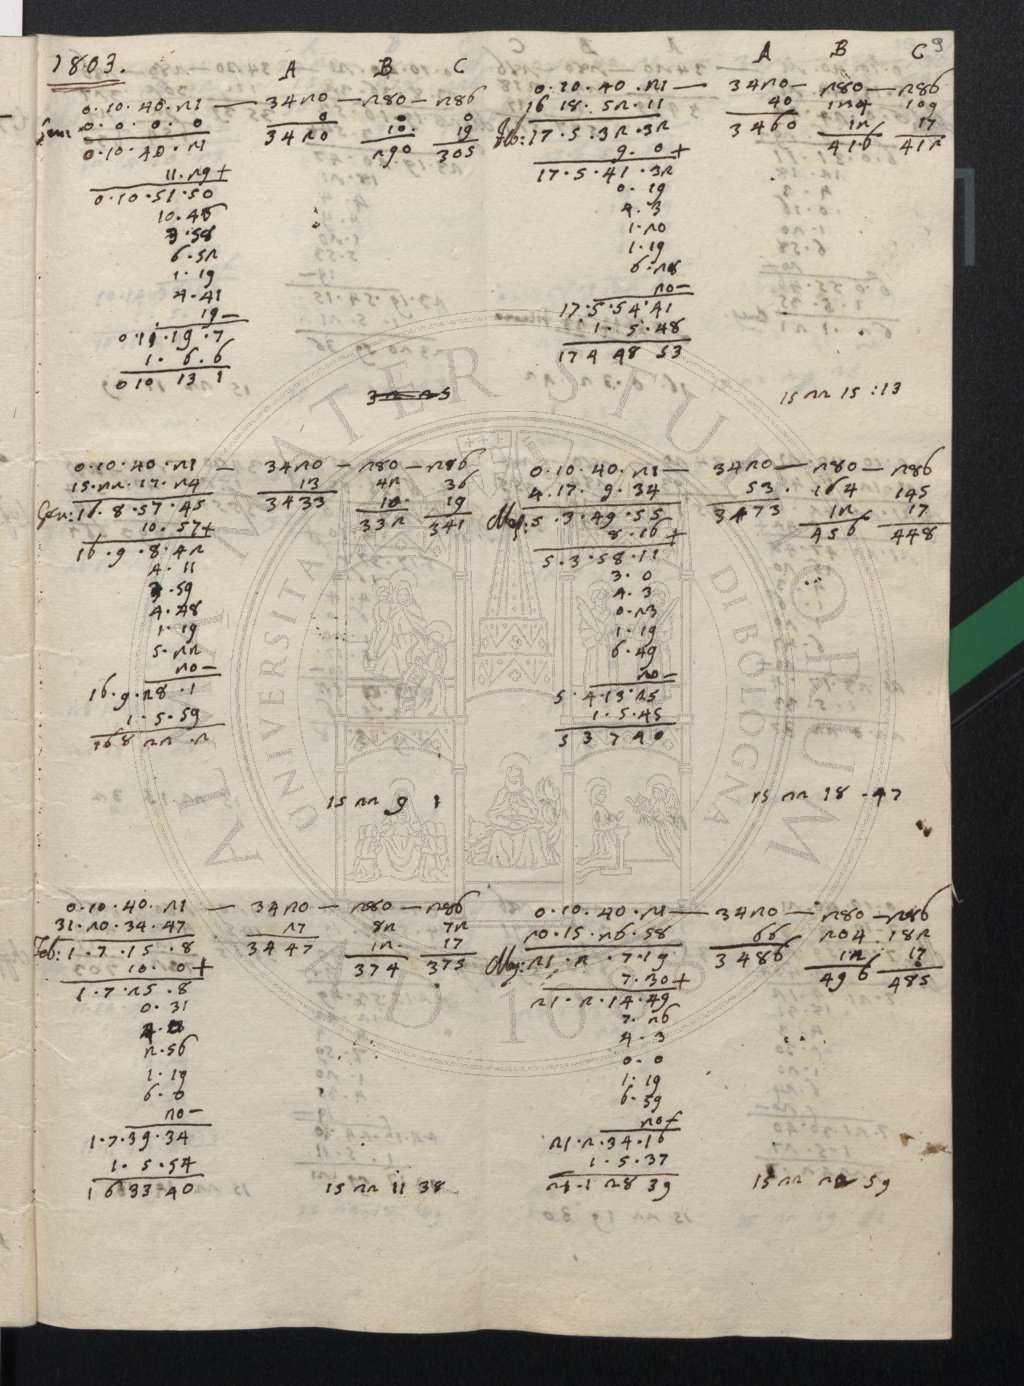 1803. A B C
0.10.40.21 — 3420 — 280 — 286
Genn: 0.0.0.0 0 0 0
10 19
0.10.40.21 3420 290 305
11.29+
0.10.51.50
10.46
3.58
6.52
1.19
4.41
19—
0.11.19.7
1.6.6
0 10 13 1
3 22 25
A B C 9
0.10.40.21 — 3420 — 280 — 286
16 18.52.11 40 124 109
12 17
Feb: 17.5.32.32 3460 416 412
9.0+
17.5.41.32
0.19
4.3
1.20
1.19
6.28
20—
17.5.54.41
1.5.48
17 4 48 53
15 22 15:13
0.10.40.21 — 3420 — 280 — 286
15.22.17.24 13 42 36
10 19
Gen: 16.8.57.45 3433 332 341
10.57+
16.9.8.42
4.11
3.59
4.48
1.19
5.22
20—
16.9.28.1
1.5.59
16 8 22.2
15 22 9 1
0.10.40.21 — 3420 — 280 — 286
4.17.9.34 53. 164 145
12 17
Mag: 5.3.49.55 3473 456 448
8.16+
5.3.58.11
3.0
4.3
0.23
1.19
6.49
20—
5.4.13.25
1.5.45
5 3 7 40
15 22 18.47
0.10.40.21 — 3420 — 280 — 286
31.20.34.47 27 82 72
12 17
Feb: 1.7.15.8 3447 374 375
10.0+
1.7.25.8
0.31
4.0
2.56
1.19
6.0
20—
1.7.39.34
1.5.54
1 6 33 40
15 22 11 38
0.10.40.21 — 3420 — 280 — 286
20.15.26.58 66 204 182
12 17
Mag: 21.2.7.19 3486 496 485
7.30+
21.2.14.49
7.26
4.3
0.0
1.19
6.59
20—
21.2.34.16
1.5.37
21.1 28 39
15 22 22 59
ALMA MATER STUDIORUM
UNIVERSITAS DI BOLOGNA
A.D. 1088